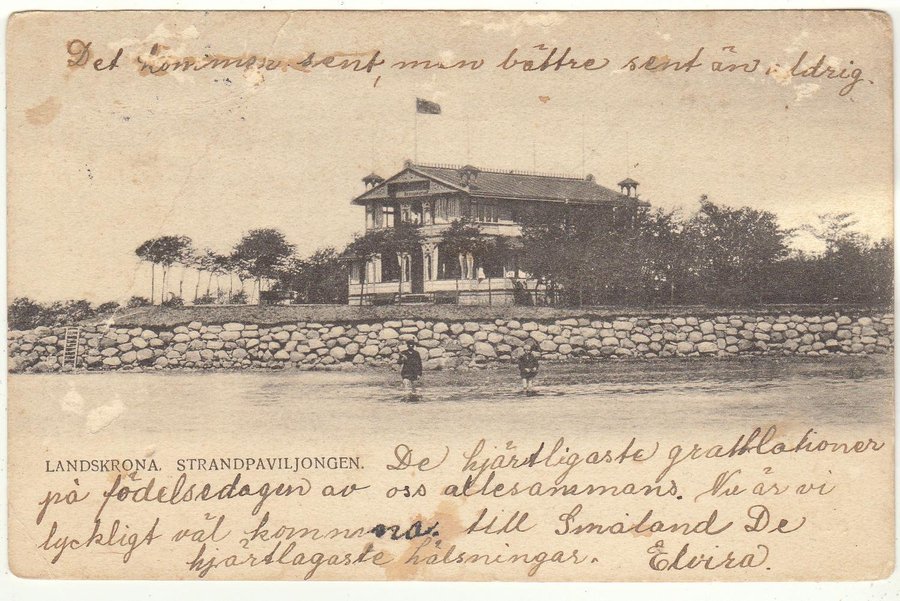 Det kommer sent, men bättre sent än aldrig.
LANDSKRONA. STRANDPAVILJONGEN.
De hjärtligaste grattlationer
på födelsedagen av oss allesammans. Nu är vi
lyckligt väl komma till Småland De
hjärtlagaste hälsningar. Elvira.